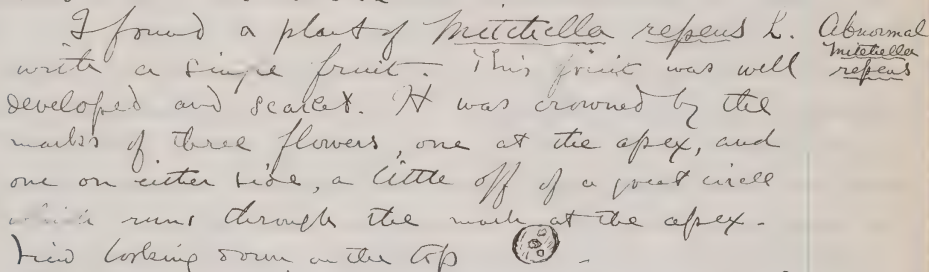 I found a plant of Mitchella repens L.
with a single fruit. This fruit was well
developed and scarlet. It was crowned by the
marks of three flowers, one at the apex, and
one on either side, a little off of a great circle
which runs through the mark at the apex.
View looking down on the top
Abnormal
Mitchella
repens